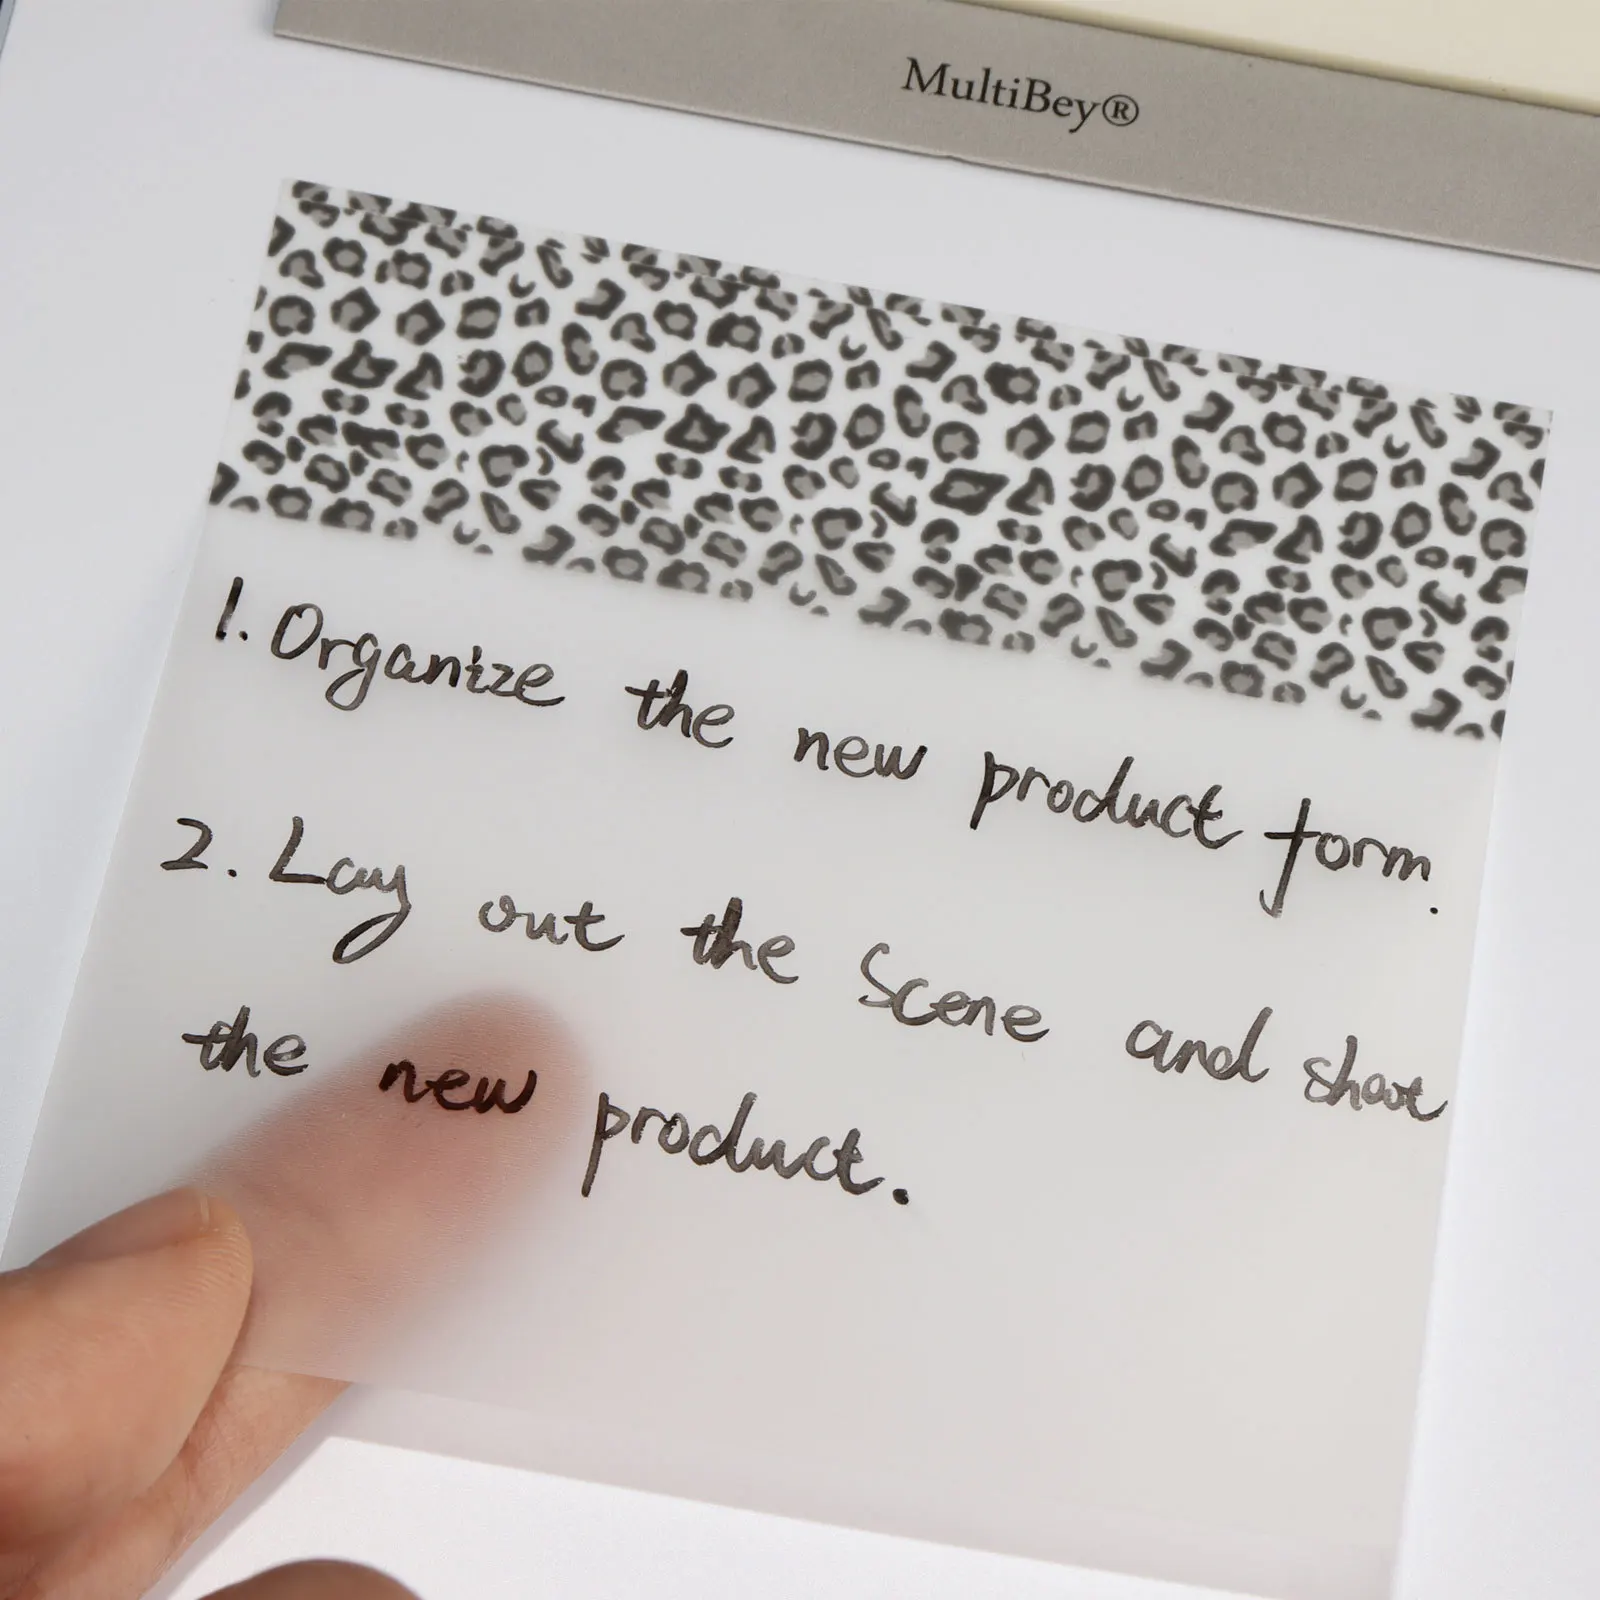 MultiBey®
1. Organize the new product form.
2. Lay out the Scene and shoot
the new product.